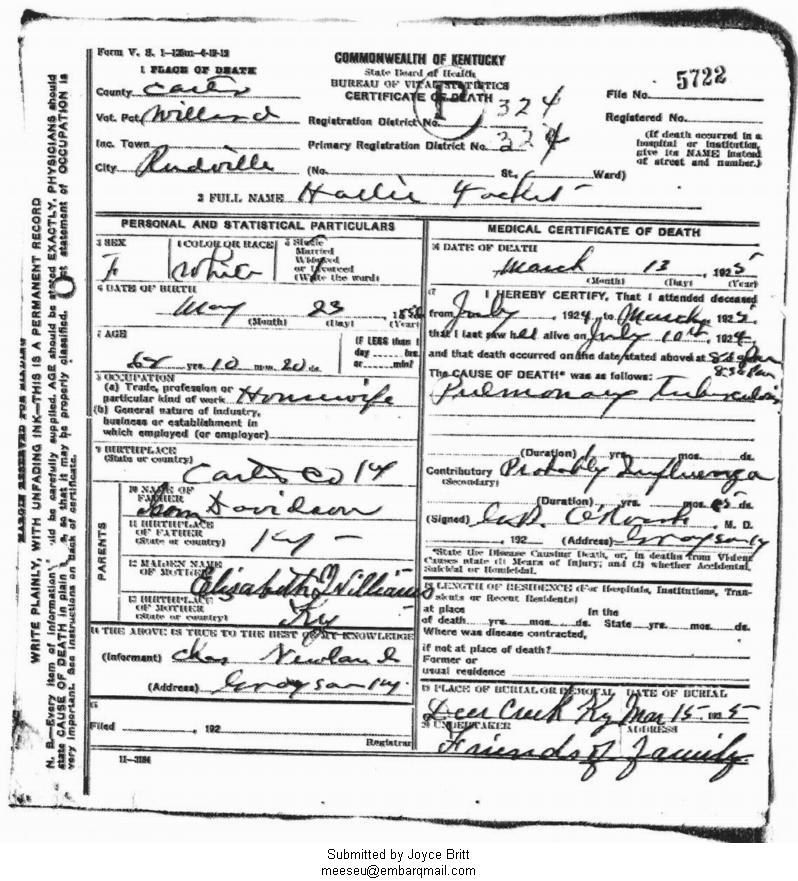 Form V. S. 1-125m-6-19-19
COMMONWEALTH OF KENTUCKY
State Board of Health
BUREAU OF VITAL STATISTICS
CERTIFICATE OF DEATH
File No. 5722
Registered No.
(If death occurred in a hospital or institution, give its NAME instead of street and number.)
1 PLACE OF DEATH
County Carter
Vot. Pct. Willard
Inc. Town
City Rudville
Registration District No. 324
Primary Registration District No. 324
(No. St., Ward)
2 FULL NAME Hallie
PERSONAL AND STATISTICAL PARTICULARS
3 SEX F
4 COLOR OR RACE White
5 Single Married Widowed or Divorced (Write the word)
6 DATE OF BIRTH
May 23, 185
(Month) (Day) (Year)
7 AGE
yrs. 10 mos. 20 ds.
IF LESS than 1 day hrs. or min?
8 OCCUPATION
(a) Trade, profession or particular kind of work Housewife
(b) General nature of industry, business or establishment in which employed (or employer)
9 BIRTHPLACE
(State or country)
Carter Co Ky
PARENTS
10 NAME OF FATHER Davidson
11 BIRTHPLACE OF FATHER (State or country) Ky
12 MAIDEN NAME OF MOTHER Elisabeth J Williams
13 BIRTHPLACE OF MOTHER (State or country) Ky
14 THE ABOVE IS TRUE TO THE BEST OF MY KNOWLEDGE
(Informant) Chas Newland
(Address) Grayson Ky.
15
Filed , 192
Registrar
11-3184
MEDICAL CERTIFICATE OF DEATH
16 DATE OF DEATH
March 13, 1925
(Month) (Day) (Year)
17 I HEREBY CERTIFY, That I attended deceased
from July, 1924 to March, 1925,
that I last saw her alive on July 10th, 1924,
and that death occurred on the date stated above at 8:30 Pm
8:30 Pm
The CAUSE OF DEATH* was as follows:
Pulmonary Tuberculosis
(Duration) yrs. mos. ds.
Contributory Probably Influenza
(Secondary)
(Duration) yrs. mos. 5 ds.
(Signed) M. D.
, 192 (Address) Grayson Ky
*State the Disease Causing Death, or, in deaths from Violent Causes state (1) Means of Injury; and (2) whether Accidental, Suicidal or Homicidal.
18 LENGTH OF RESIDENCE (For Hospitals, Institutions, Transients or Recent Residents)
At place of death yrs. mos. ds. In the State yrs. mos. ds.
Where was disease contracted,
if not at place of death?
Former or
usual residence
19 PLACE OF BURIAL OR REMOVAL DATE OF BURIAL
Deer Creek Ky Mar 15 1925
20 UNDERTAKER ADDRESS
Friends of Family
MARGIN RESERVED FOR BINDING
WRITE PLAINLY, WITH UNFADING INK—THIS IS A PERMANENT RECORD
N. B.—Every item of information should be carefully supplied. AGE should be stated EXACTLY. PHYSICIANS should
state CAUSE OF DEATH in plain terms, so that it may be properly classified. Exact statement of OCCUPATION is
very important. See instructions on back of certificate.
Submitted by Joyce Britt
meeseu@embarqmail.com